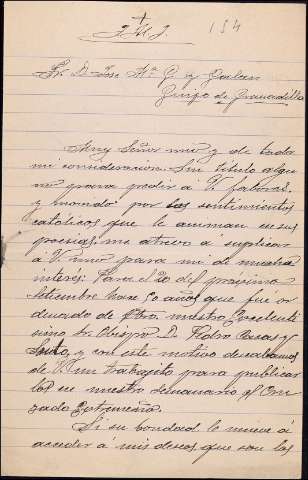 J. M. J.
134
Sr. D. Jose Mª G y Galan
Guijo de Granadilla
Muy Señor mio y de toda
mi consideracion. Sin titulo algu
no para pedir á V. favores
y movido por los sentimientos
católicos que le animan en sus
poesias, me atrevo á suplicar
á V. uno para mi de mucha
interés: Para el 20 del próximo
Setiembre hace 50 años que fue or
denado de Pbro. nuestro Excelentí
simo Sr. Obispo D. Pedro Casas y
Souto, y con este motivo deseabamos
de V. un trabajito para publicar
lo en nuestro semanario el Cru
zado Extremeño.
Si su bondad le mueve á
acceder á mis deseos que son los